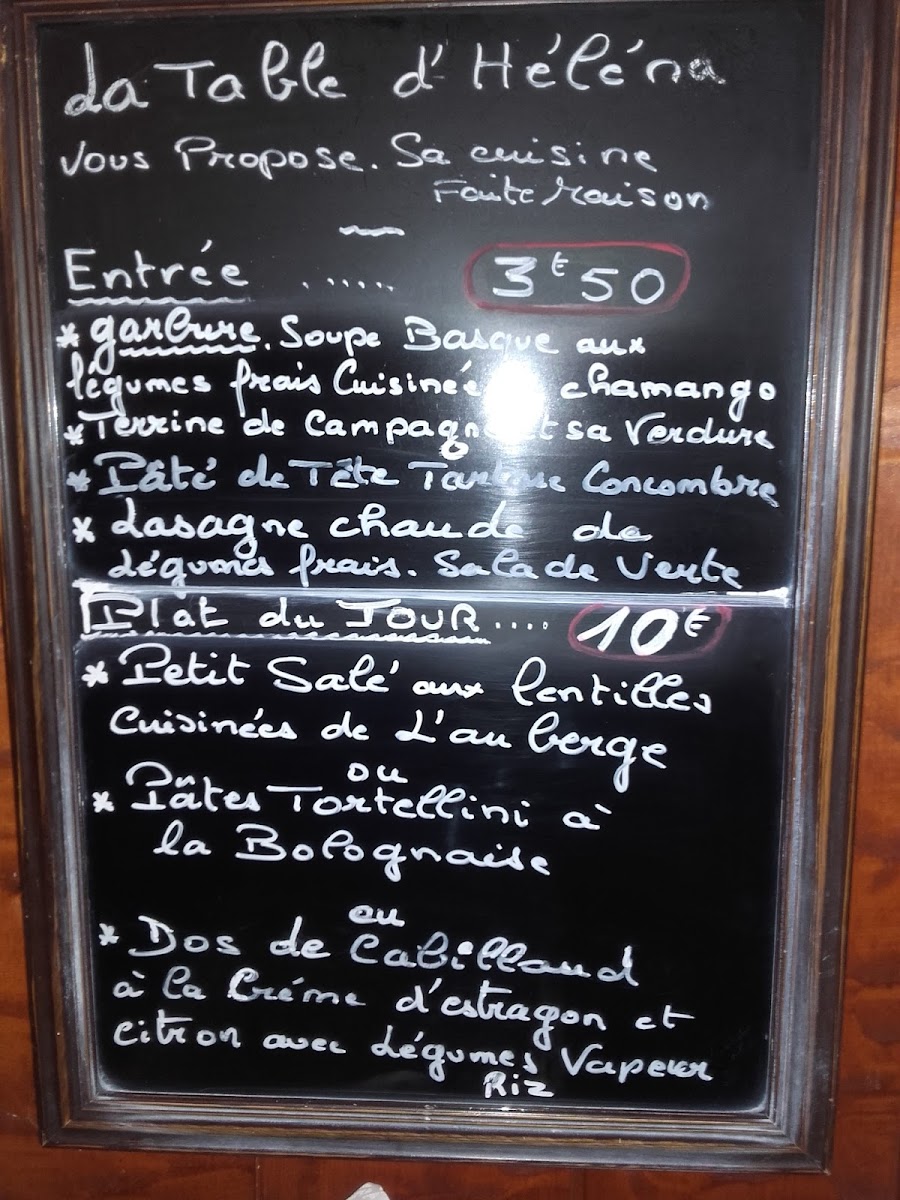 La Table d'Héléna
Vous Propose. Sa cuisine
Faite Maison
Entrée ...... 3€50
* garbure. Soupe Basque aux
légumes frais Cuisinée chamango
* Terrine de Campagne et sa Verdure
* Pâté de Tête Tartare Concombre
* Lasagne chaude de
Légumes frais. Salade Verte
Plat du JOUR.... 10€
* Petit Salé aux lentilles
Cuisinées de L'auberge
ou
* Pâtes Tortellini à
la Bolognaise
ou
* Dos de Cabillaud
à la Créme d'estragon et
citron avec Légumes Vapeur
Riz